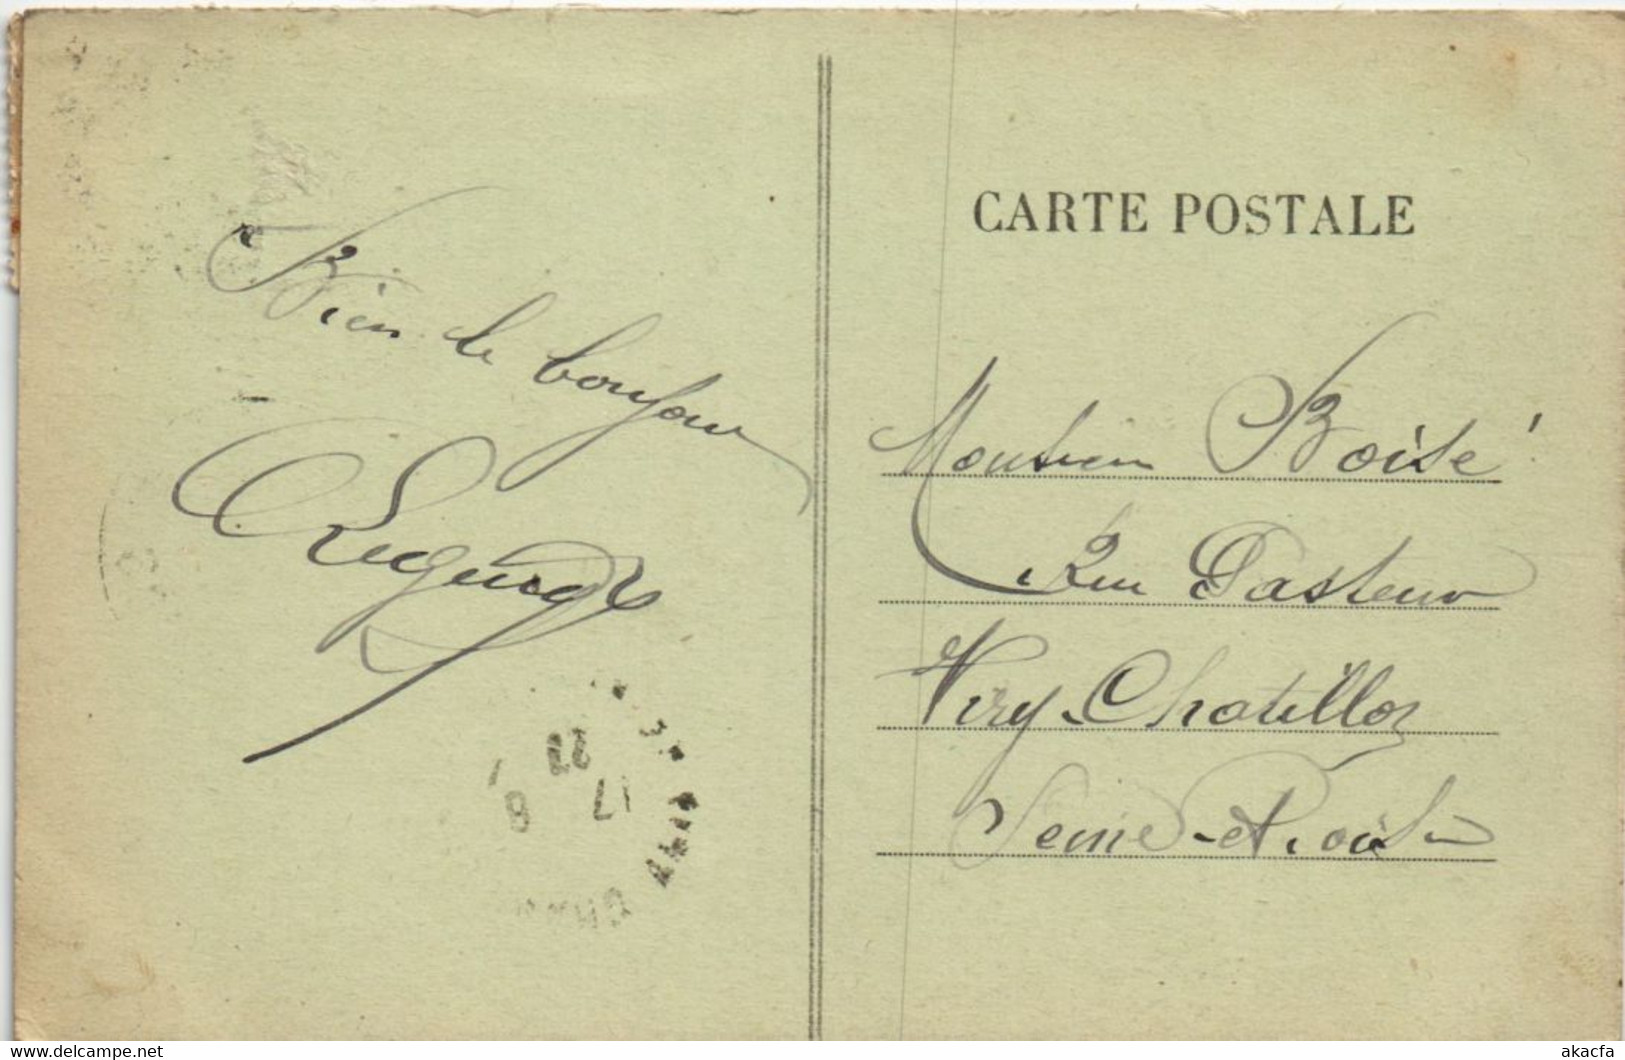 CARTE POSTALE
Bien le bonjour
Monsieur Boisé
Rue Pasteur
Viry-Chatillon
Seine-et-Oise
delcampe.net
akacfa